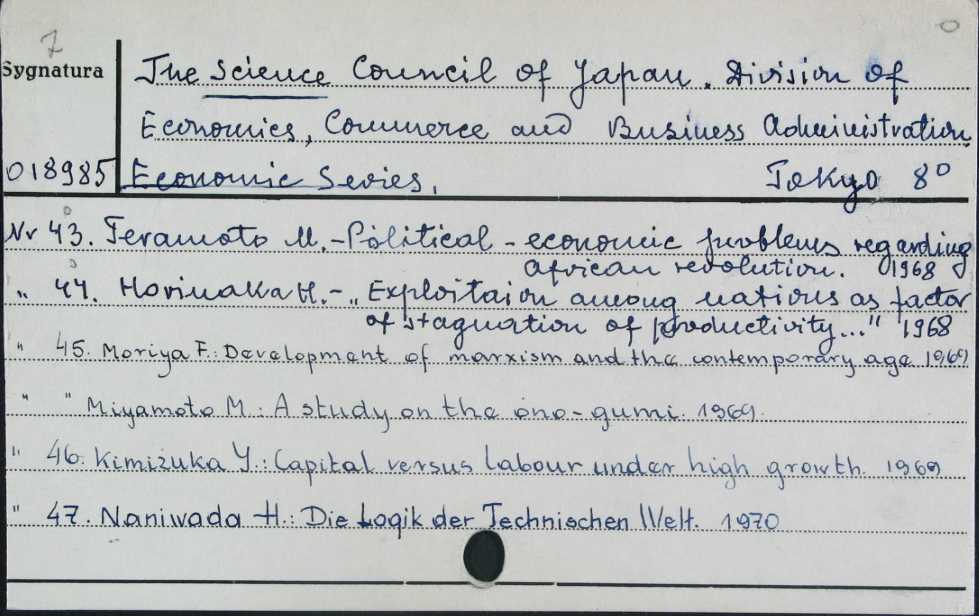 7
Sygnatura
The Science Council of Japan. Division of
Economics, Commerce and Business Administration,
018985 Economic Series, Tokyo 8°
Nr 43. Teramoto M. - Political - economic problems regarding
african revolution. 1968
" 44. Horinaka H. - „Exploitaion among nations as factor
of stagnation of productivity..." 1968
" 45. Moriya F.: Development of marxism and the contemporary age 1969
" " Miyamoto M.: A study on the ono-gumi. 1969.
" 46. Kimizuka Y.: Capital versus labour under high growth. 1969
" 47. Naniwada H.: Die Logik der Technischen Welt. 1970